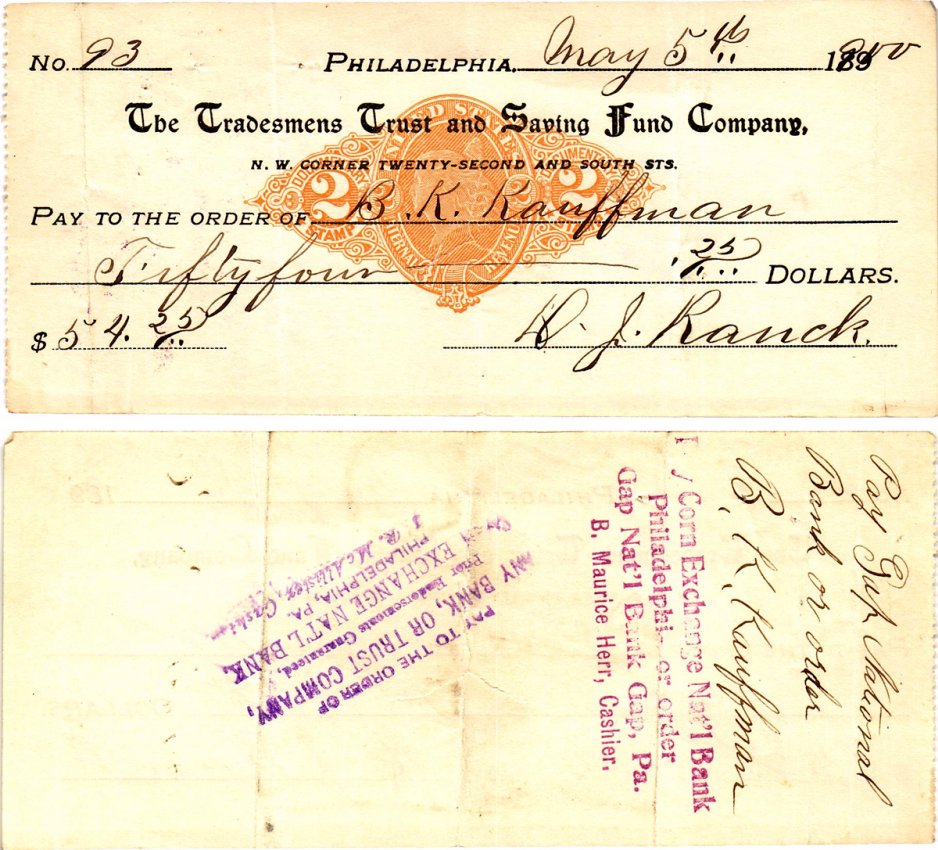 No. 93 PHILADELPHIA, May 5th 1900
The Tradesmens Trust and Saving Fund Company,
N. W. CORNER TWENTY-SECOND AND SOUTH STS.
UNITED STATES
DOCUMENTARY
2 2
STAMP
INTERNAL REVENUE
PAY TO THE ORDER OF B. K. Kauffman
Fifty four 25/.. DOLLARS.
$ 54. 25/..
D. J. Ranck.
Pay Gap National
Bank or order
B. K. Kauffman
Corn Exchange Nat'l Bank
Philadelphia or order
Gap Nat'l Bank Gap, Pa.
B. Maurice Herr, Cashier.
PAY TO THE ORDER OF
ANY BANK, OR TRUST COMPANY,
Prior Indorsements Guaranteed,
CORN EXCHANGE NAT'L BANK,
PHILADELPHIA, PA.
R. McAllister, Cashier.